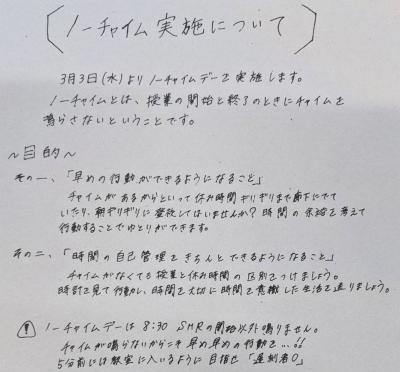 ノーチャイム実施について
3月3日(水)よりノーチャイムデーを実施します。
ノーチャイムとは、授業の開始と終了のときにチャイムを
鳴らさないということです。
～目的～
その一、「早めの行動ができるようになること」
チャイムがあるからといって休み時間ギリギリまで廊下にでて
いたり、朝ギリギリに登校してはいませんか?時間の余裕を考えて
行動することでゆとりができます。
その二、「時間の自己管理をきちんとできるようになること」
チャイムがなくても授業と休み時間の区別をつけましょう。
時計を見て行動し、時間を大切に時間を意識した生活を送りましょう。
! ノーチャイムデーは8:30 SHRの開始以外鳴りません。
チャイムが鳴らないからこそ早め早めの行動を...!!
5分前には教室に入いるように目指せ「遅刻者0」